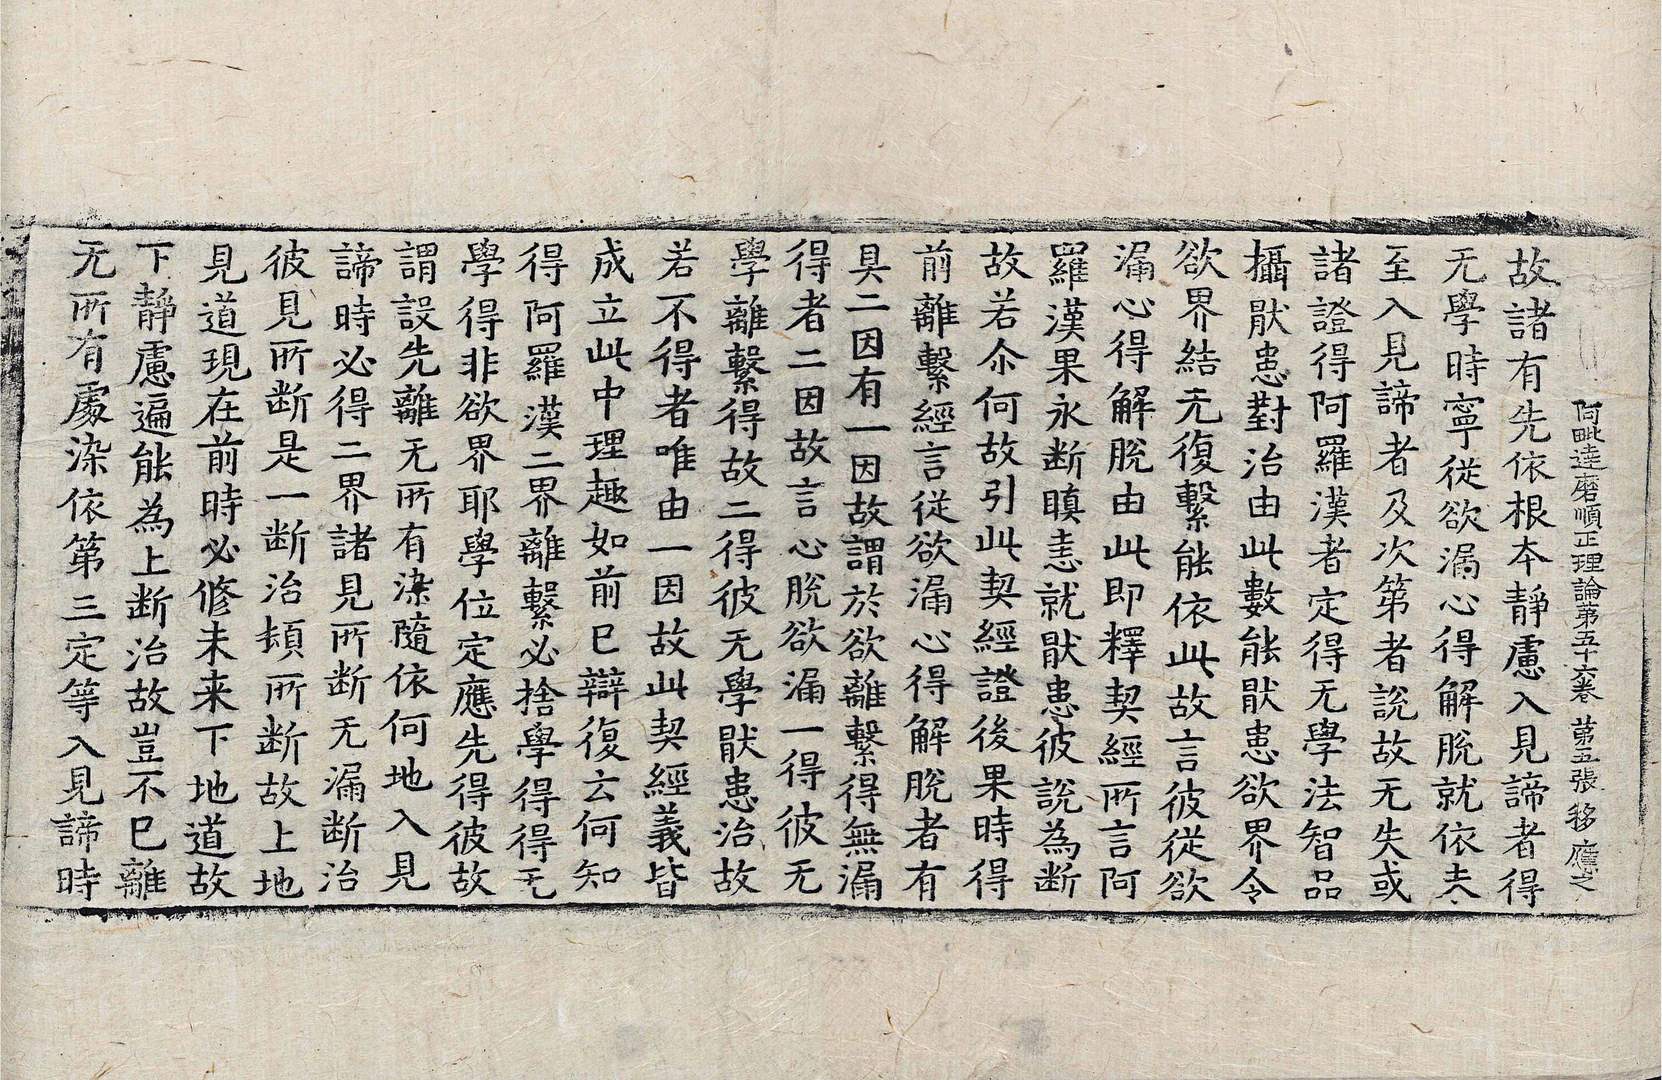 阿毗達磨順正理論第五十六卷 第五張 移 應之
故諸有先依根本靜慮入見諦者得
无學時寧從欲漏心得解脫就依未
至入見諦者及次第者說故无失或
諸證得阿羅漢者定得无學法智品
攝猒患對治由此數能猒患欲界令
欲界結无復繫能依此故言彼從欲
漏心得解脫由此即釋契經所言阿
羅漢果永断瞋恚就猒患彼說為断
故若尒何故引此契經證後果時得
前離繫經言從欲漏心得解脫者有
具二因有一因故謂於欲離繫得無漏
得者二因故言心脫欲漏一得彼无
學離繫得故二得彼无學猒患治故
若不得者唯由一因故此契經義皆
成立此中理趣如前已辯復云何知
得阿羅漢二界離繫必捨學得得无
學得非欲界耶學位定應先得彼故
謂設先離无所有染隨依何地入見
諦時必得二界諸見所断无漏断治
彼見所断是一断治頓所断故上地
見道現在前時必修未来下地道故
下靜慮遍能為上断治故豈不已離
无所有處染依第三定等入見諦時